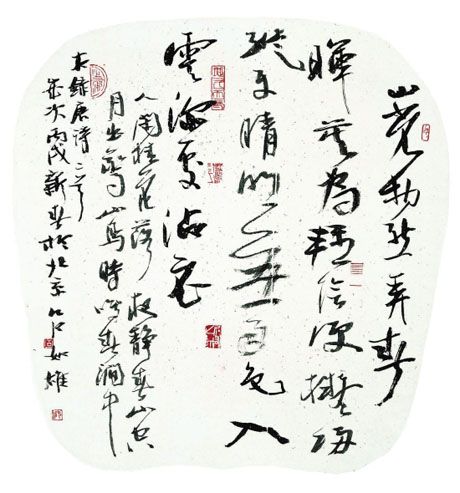 山光物態弄春
暉莫為輕陰便擬歸
縱使晴明無雨色入
雲深處沾衣
人閒桂花落夜靜春山空
月出驚山鳥時鳴春澗中
右錄唐詩二首
歲次丙戌新春於北京如雄